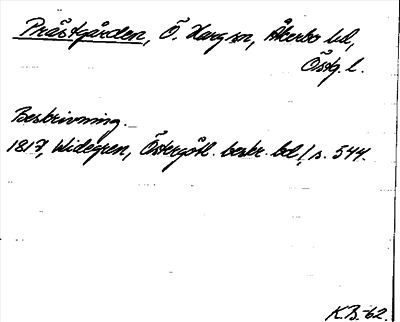 Prästgården, Ö. Harg sn, Åkerbo hd,
Östg. l.
Beskrivning.
1817, Widegren, Östergötl. beskr. bd 1, s. 544.
K.B.-62.